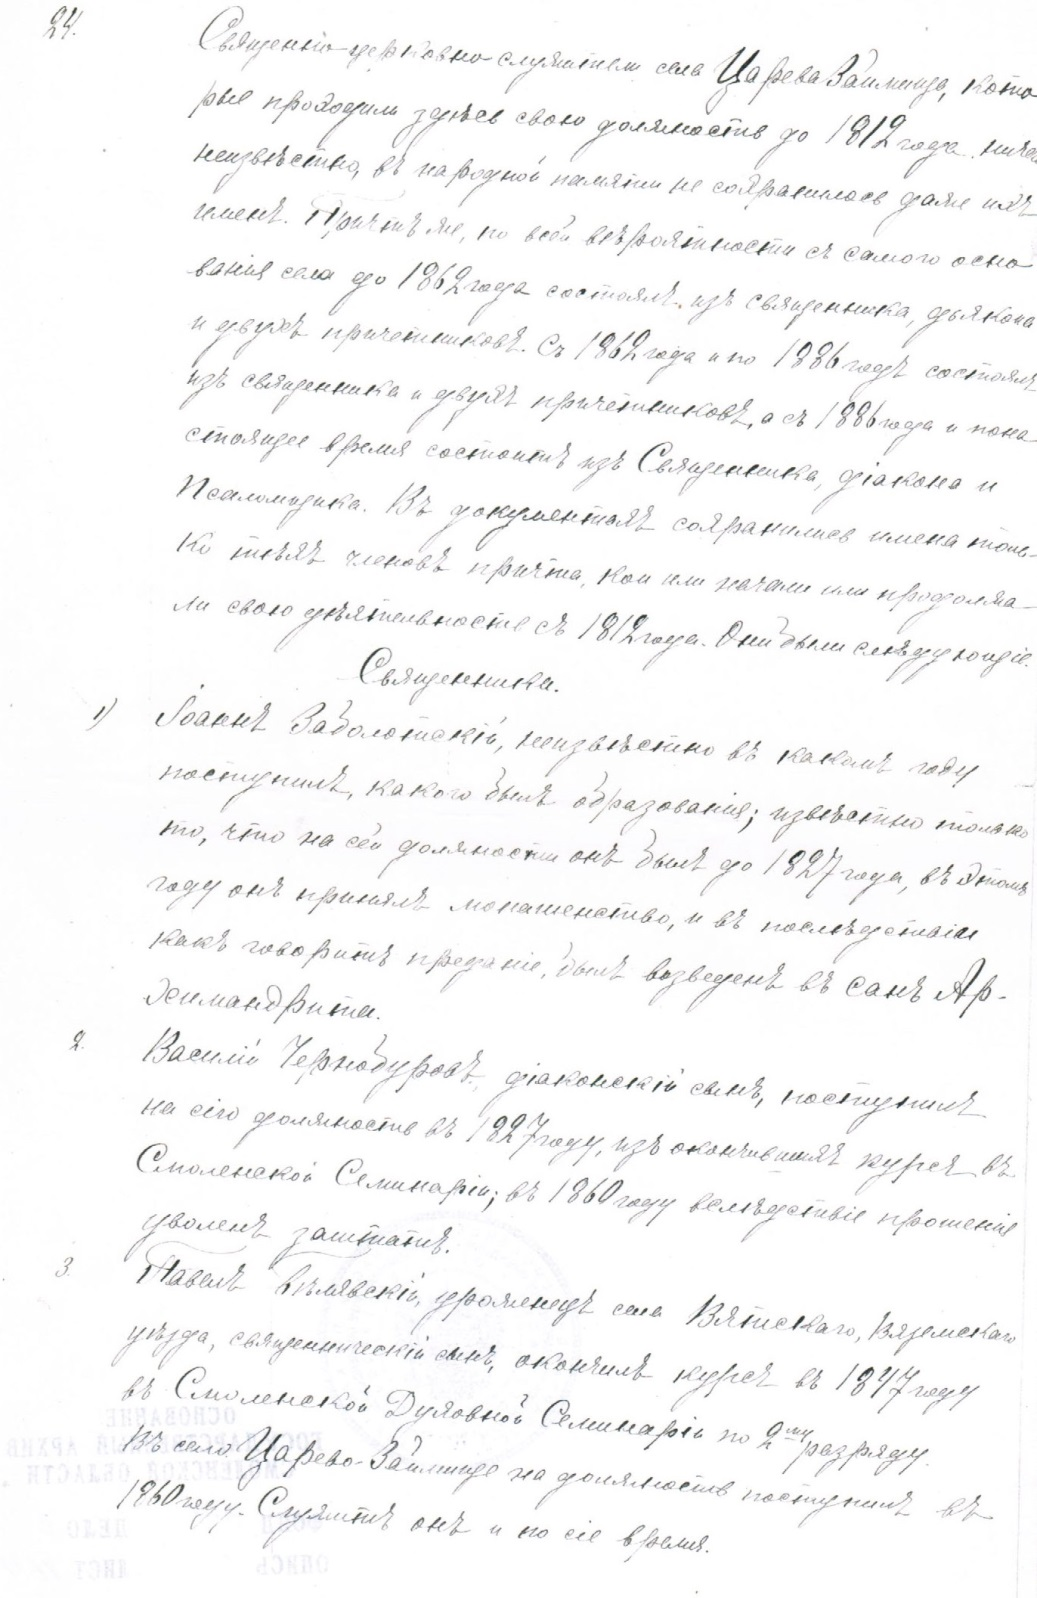 24.
Священно-церковно-служители села Царева Займища, кото
рые проходили здѣсь свою должность до 1812 года. ниче
неизвѣстно, въ народной памяти не сохранилось даже ихъ
именъ. Причтъ же, по всей вѣроятности съ самого осно
ванія села до 1862 года состоялъ изъ священника, дьякона
и двухъ причетниковъ. Съ 1862 года и по 1886 годъ состоялъ
изъ священника и двухъ причетниковъ, а съ 1886 года и пона
стоящее время состоитъ изъ Священника, діакона и
Псаломщика. Въ документахъ сохранились имена толь-
ко тѣхъ членовъ причта, кои или начали или продолжа-
ли свою дѣятельность съ 1812 года. Они были слѣдующіе.
Священники.
1) Іоаннъ Заболотскій, неизвѣстно въ какомъ году
поступилъ, какого былъ образованія; извѣстно только
то, что на сей должности онъ былъ до 1827 года, въ этомъ
году онъ принялъ монашенство, и въ послѣдствіи
какъ говоритъ преданіе, былъ возведенъ въ санъ Ар-
химандрита.
2. Василій Чернобуровъ, діаконскій сынъ, поступилъ
на сію должность въ 1827 году, изъ окончившихъ курсъ въ
Смоленской Семинаріи; въ 1860 году вслѣдствіе прошенія
уволенъ заштатъ.
3. Павелъ Бѣлявскій, уроженецъ села Вятскаго, Вяземскаго
уѣзда, священническій сынъ, окончилъ курсъ въ 1847 году
въ Смоленской Духовной Семинаріи по 2му разряду.
Въ село Царево-Займище на должность поступилъ въ
1860 году. Служитъ онъ и по сіе время.